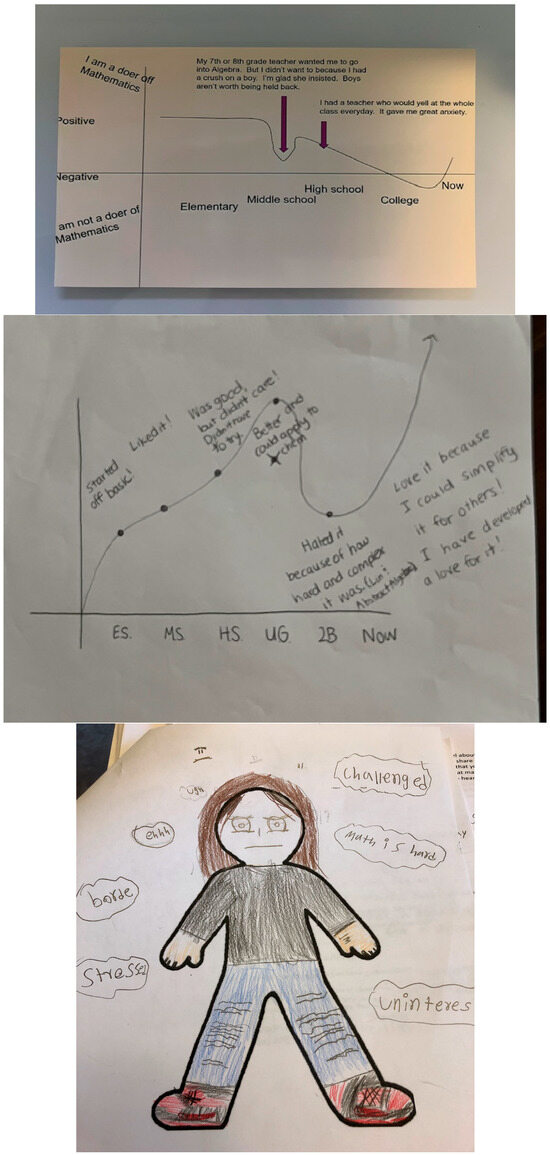 I am a doer off
Mathematics
My 7th or 8th grade teacher wanted me to go
into Algebra. But I didn't want to because I had
a crush on a boy. I'm glad she insisted. Boys
aren't worth being held back.
I had a teacher who would yell at the whole
class everyday. It gave me great anxiety.
Positive
Negative
Now
High school
Middle school
College
Elementary
am not a doer of
Mathematics
Started
off basic!
Liked it!
Was good,
but didn't care!
Didn't have
to try
Better and
could apply to
chem
Hated it
because of how
hard and complex
it was. (Lin!
Abstract Algebra)
Love it because
I could simplify
it for others!
I have developed
a love for it!
ES.
MS.
HS.
UG.
2B
Now
challenged
ugh
ehhh
math is hard
borde
stresse
uninteres
about
share
that yo
at ma
hear